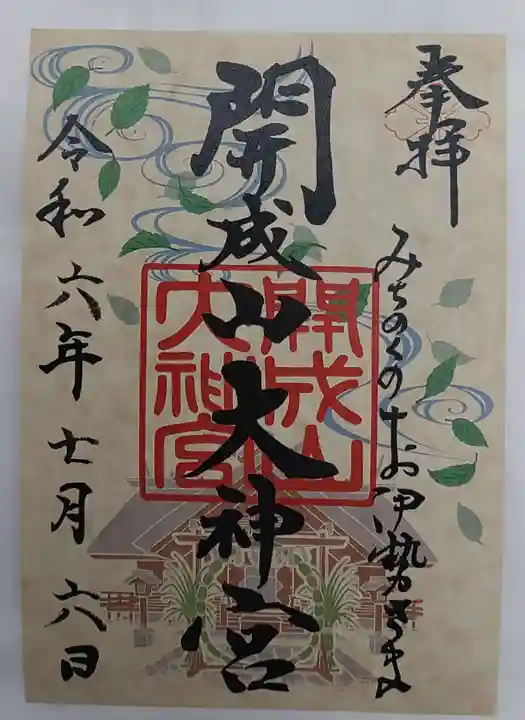 奉拝
みちのくのお伊勢さま
開成山大神宮
開成山
大神宮
令和六年七月六日